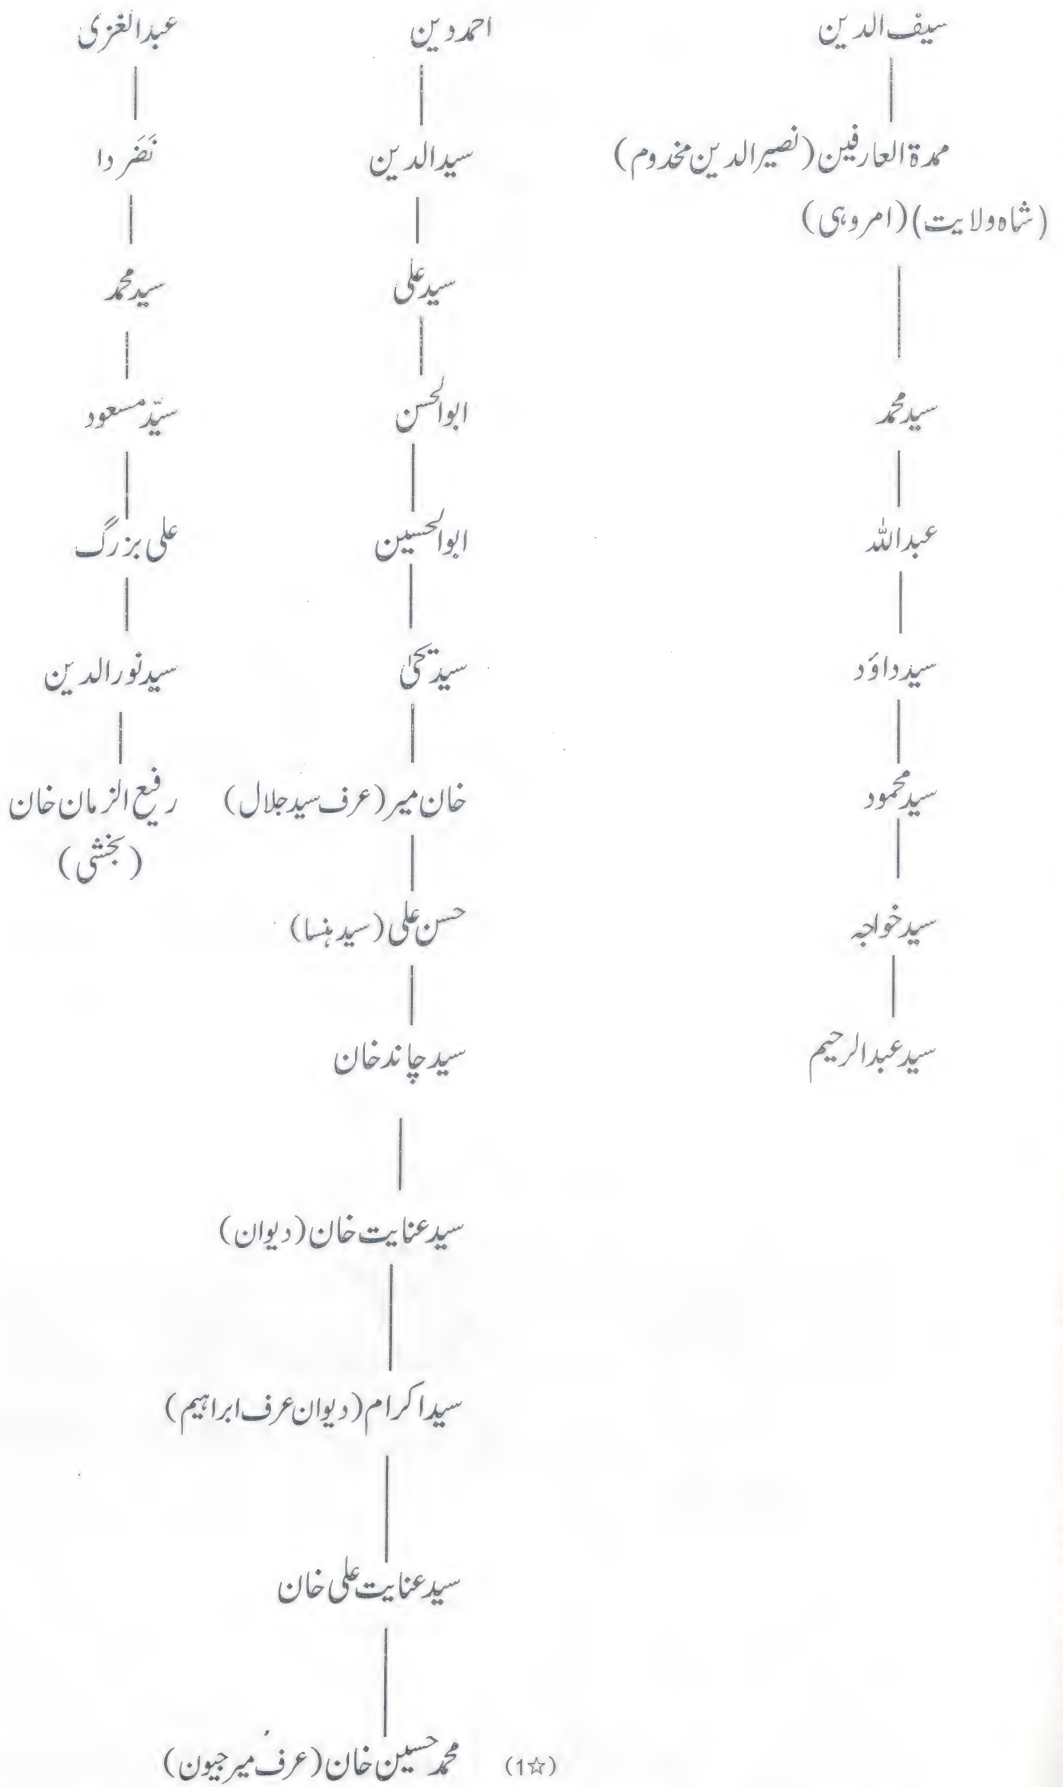 سیف الدین
ممدۃ العارفین (نصیر الدین مخدوم)
(شاہ ولایت) (امروہی)
سید محمد
عبداللہ
سید داؤد
سید محمود
سید خواجہ
سید عبدالرحیم
احمد دین
سید الدین
سید علی
ابوالحسن
ابوالحسین
سید یحیٰ
خان میر (عرف سید جلال)
حسن علی (سید ہنسا)
سید چاند خان
سید عنایت خان (دیوان)
سید اکرام (دیوان عرف ابراہیم)
سید عنایت علی خان
محمد حسین خان (عرف میر جیون)
(1☆)
عبدالغزی
نَصَر دا
سید محمد
سیّد مسعود
علی بزرگ
سید نور الدین
رفیع الزمان خان
(بخشی)